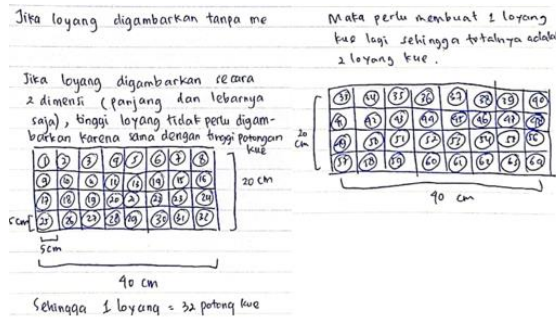 Jika loyang digambarkan tanpa me
Jika loyang digambarkan secara
2 dimensi (panjang dan lebarnya
saja), tinggi loyang tidak perlu digam-
barkan karena sama dengan tinggi potongan
kue
1 2 3 4 5 6 7 8
9 10 11 12 13 14 15 16
17 18 19 20 21 22 23 24
25 26 27 28 29 30 31 32
20 cm
5cm
5cm
40 cm
Sehingga 1 loyang = 32 potong kue
Maka perlu membuat 1 loyang
kue lagi sehingga totalnya adalah
2 loyang kue.
33 34 35 36 37 38 39 40
41 42 43 44 45 46 47 48
49 50 51 52 53 54 55 56
57 58 59 60 61 62 63 64
20
cm
40 cm